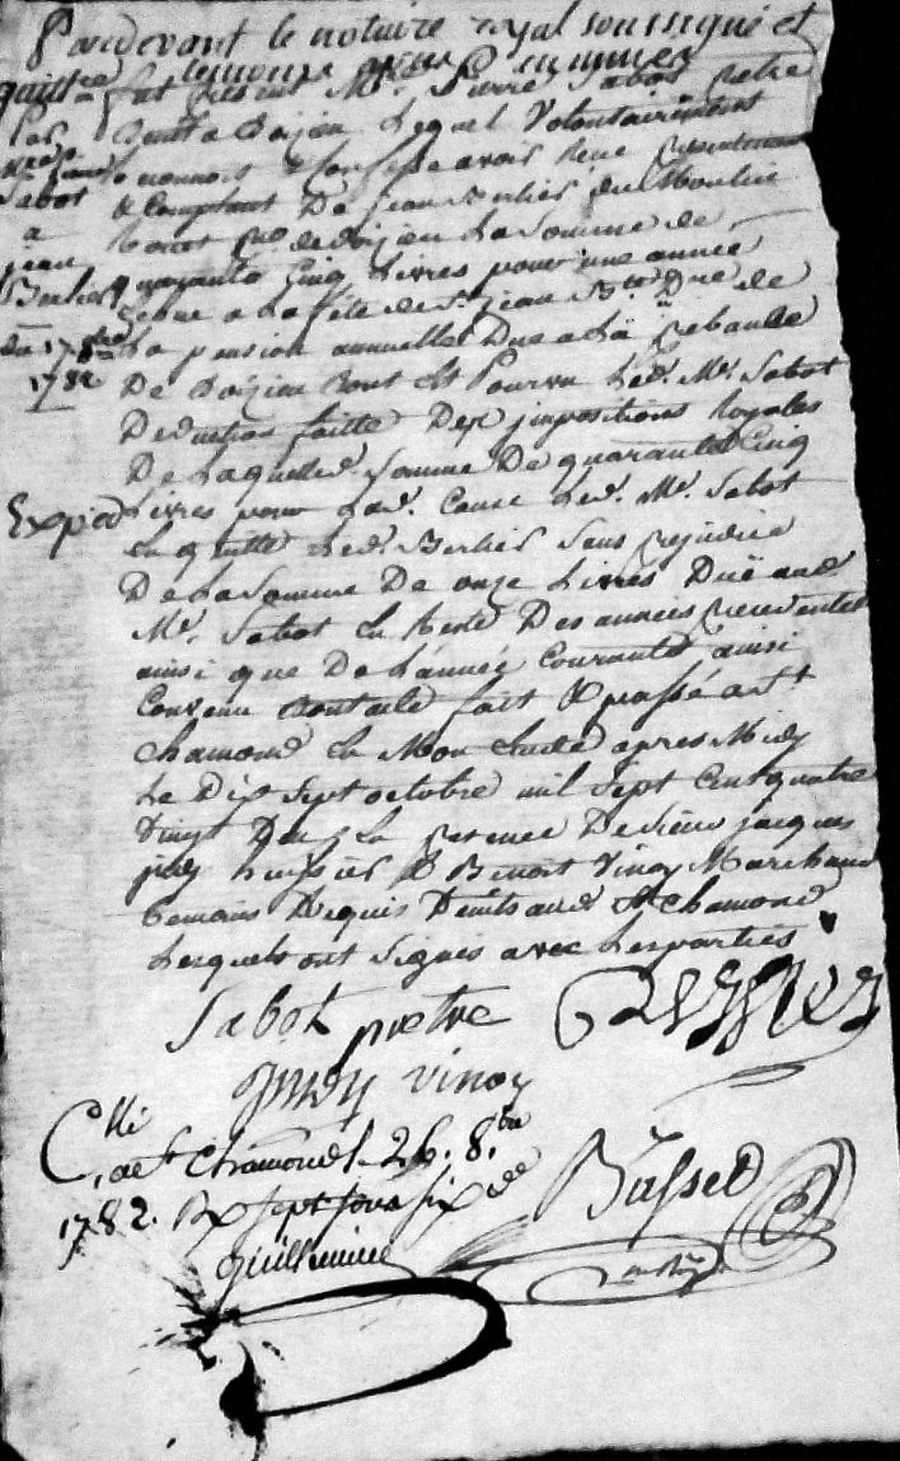 Pardevant le notaire royal soussigné et
temoins en fin nommés
fut present Mre. Pierre Sabot pretre
lequel Volontairement
reconnoit & Confesse avoir recu presentement
& Comptant De jean Berlier du Moulin
de doizieu La Somme de
quarante Cinq Livres pour une année
echue a La fête de St. jean Bte. Due de
La pension annuelle Due a La prebande
De doizieu dont Est Pourvu Led. Mr. Sabot
Deduction faitte Des jmpositions Royales
De Laquelle Somme De quarante Cinq
Livres pour Lad. Cause Led. Mr. Sabot
En quitte Led. Berlier Sans prejudice
De La Somme De onze Livres Duë aud.
Mr. Sabot En Reste Des années precedentes
ainsi que De L'année Courante ainsi
Convenu dont acte fait & passé a St.
Chamond En Mon Etude apres Midy
Le Dix Sept octobre mil Sept Cent quatre
Vingt Deux En presence De Sieur jacques
huissier & Benoit Vinoy Marchand
temoins Requis aud. St. Chamond
Lesquels ont Signés avec Les parties
quittce
par
Mre
Sabot
a
jean
Berlier
du 17 8bre
1782
Exped
Sabot pretre
vinoy
Clli
a St. Chamond L. 26. 8.bre
1782. Rx sept sous six de
Guilleminet